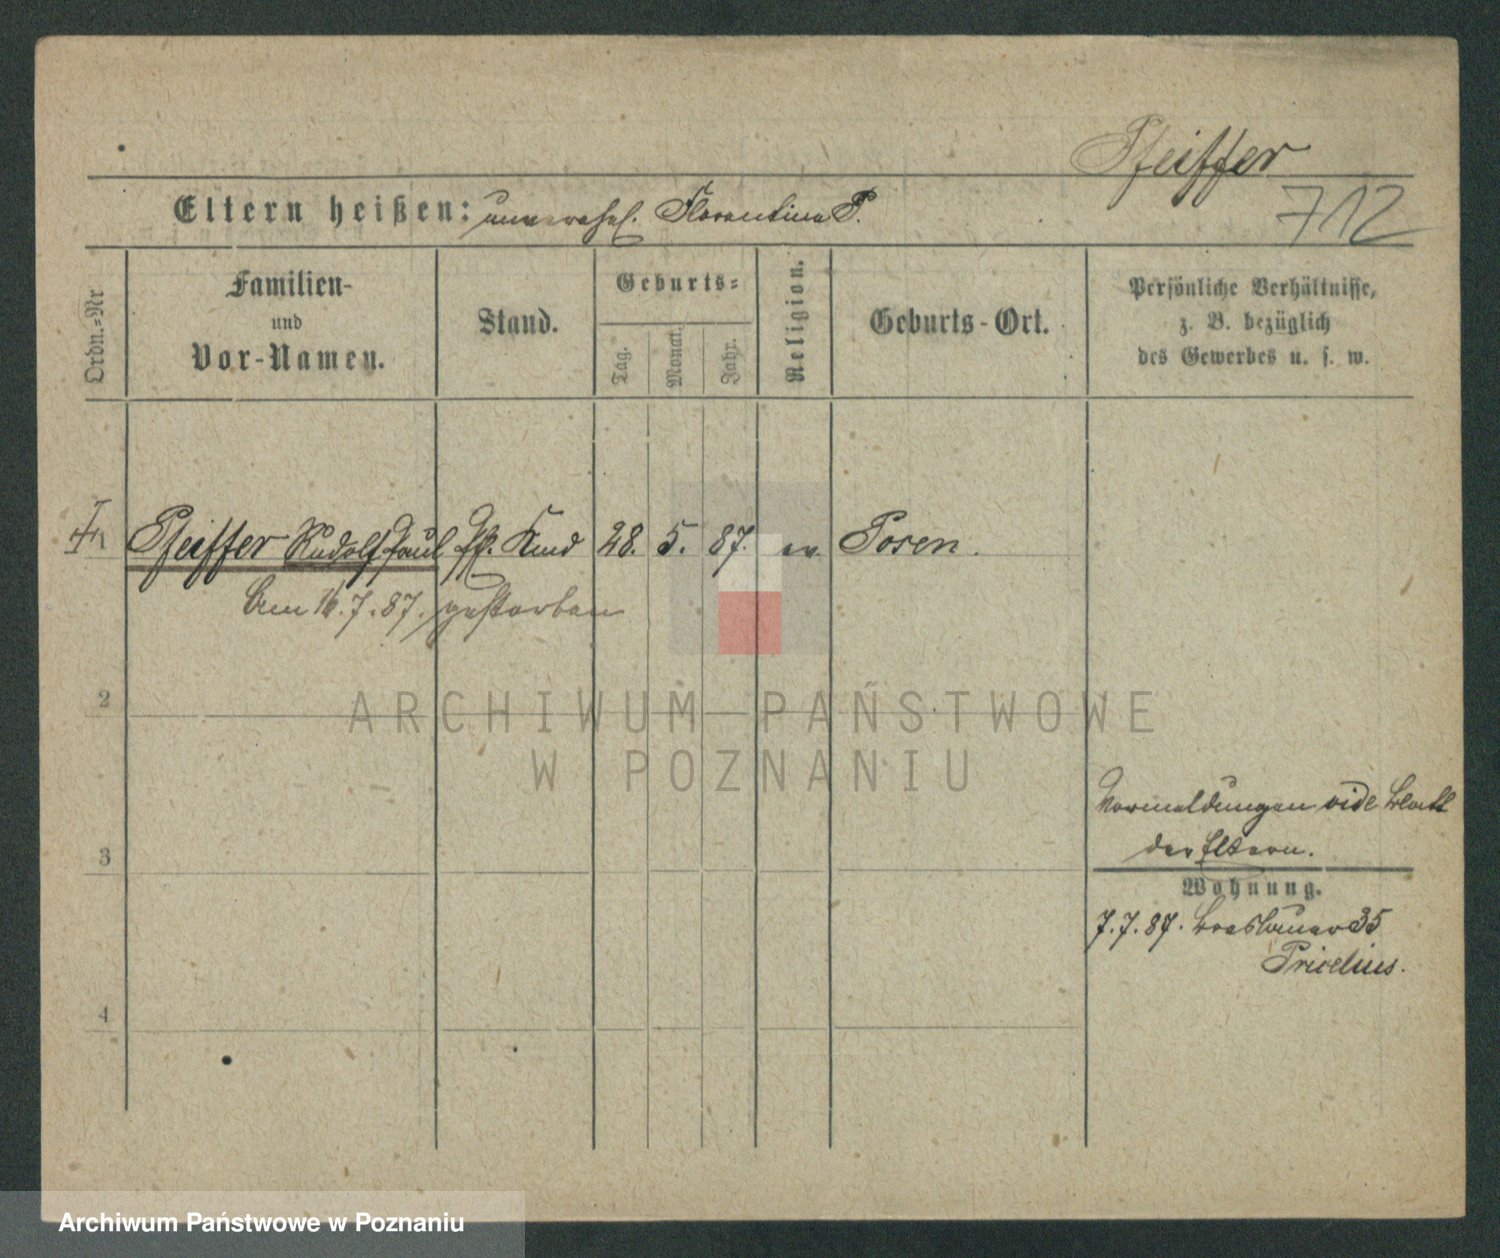 Pfeiffer
712
Eltern heißen: unverehel. Florentine P.
Ordn.=Nr
Familien-
und
Vor-Namen.
Stand.
Geburts=
Tag.
Monat.
Jahr.
Religion.
Geburts-Ort.
Persönliche Verhältnisse,
z. B. bezüglich
des Gewerbes u. s. w.
1 Pfeiffer Rudolf Paul Kind 28. 5. 87. ev Posen.
Am 16.7.87. gestorben
2
ARCHIWUM PAŃSTWOWE
W POZNANIU
3
Vormeldungen vide Blatt
der Eltern.
Wohnung.
7.7.87. Breslauer 35
4
Archiwum Państwowe w Poznaniu